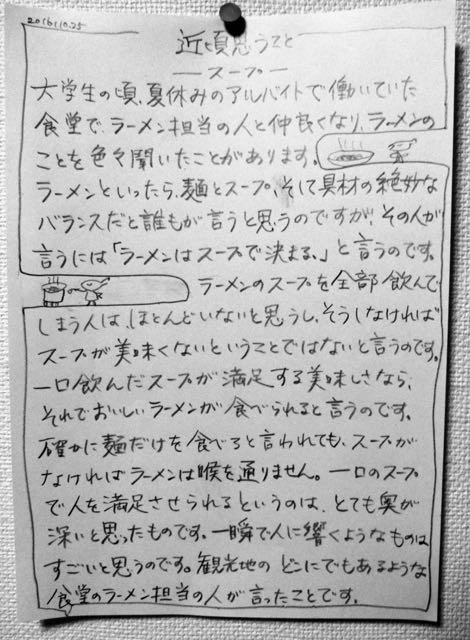 2016.10.25
近頃思うこと
―スープ―
大学生の頃、夏休みのアルバイトで働いていた
食堂で、ラーメン担当の人と仲良くなり、ラーメンの
ことを色々聞いたことがあります。
ラーメンといったら、麺とスープ、そして具材の絶妙な
バランスだと誰もが言うと思うのですが、その人が
言うには「ラーメンはスープで決まる、」と言うのです。
ラーメンのスープを全部飲んで
しまう人は、ほとんどいないと思うし、そうしなければ
スープが美味くないということではないと言うのです。
一口飲んだスープが満足する美味しさなら、
それでおいしいラーメンが食べられると言うのです。
確かに麺だけを食べろと言われても、スープが
なければラーメンは喉を通りません。一口のスープ
で人を満足させられるというのは、とても奥が
深いと思ったものです。一瞬で人に響くようなものは
すごいと思うのです。観光地のどこにでもあるような
食堂のラーメン担当の人が言ったことです。